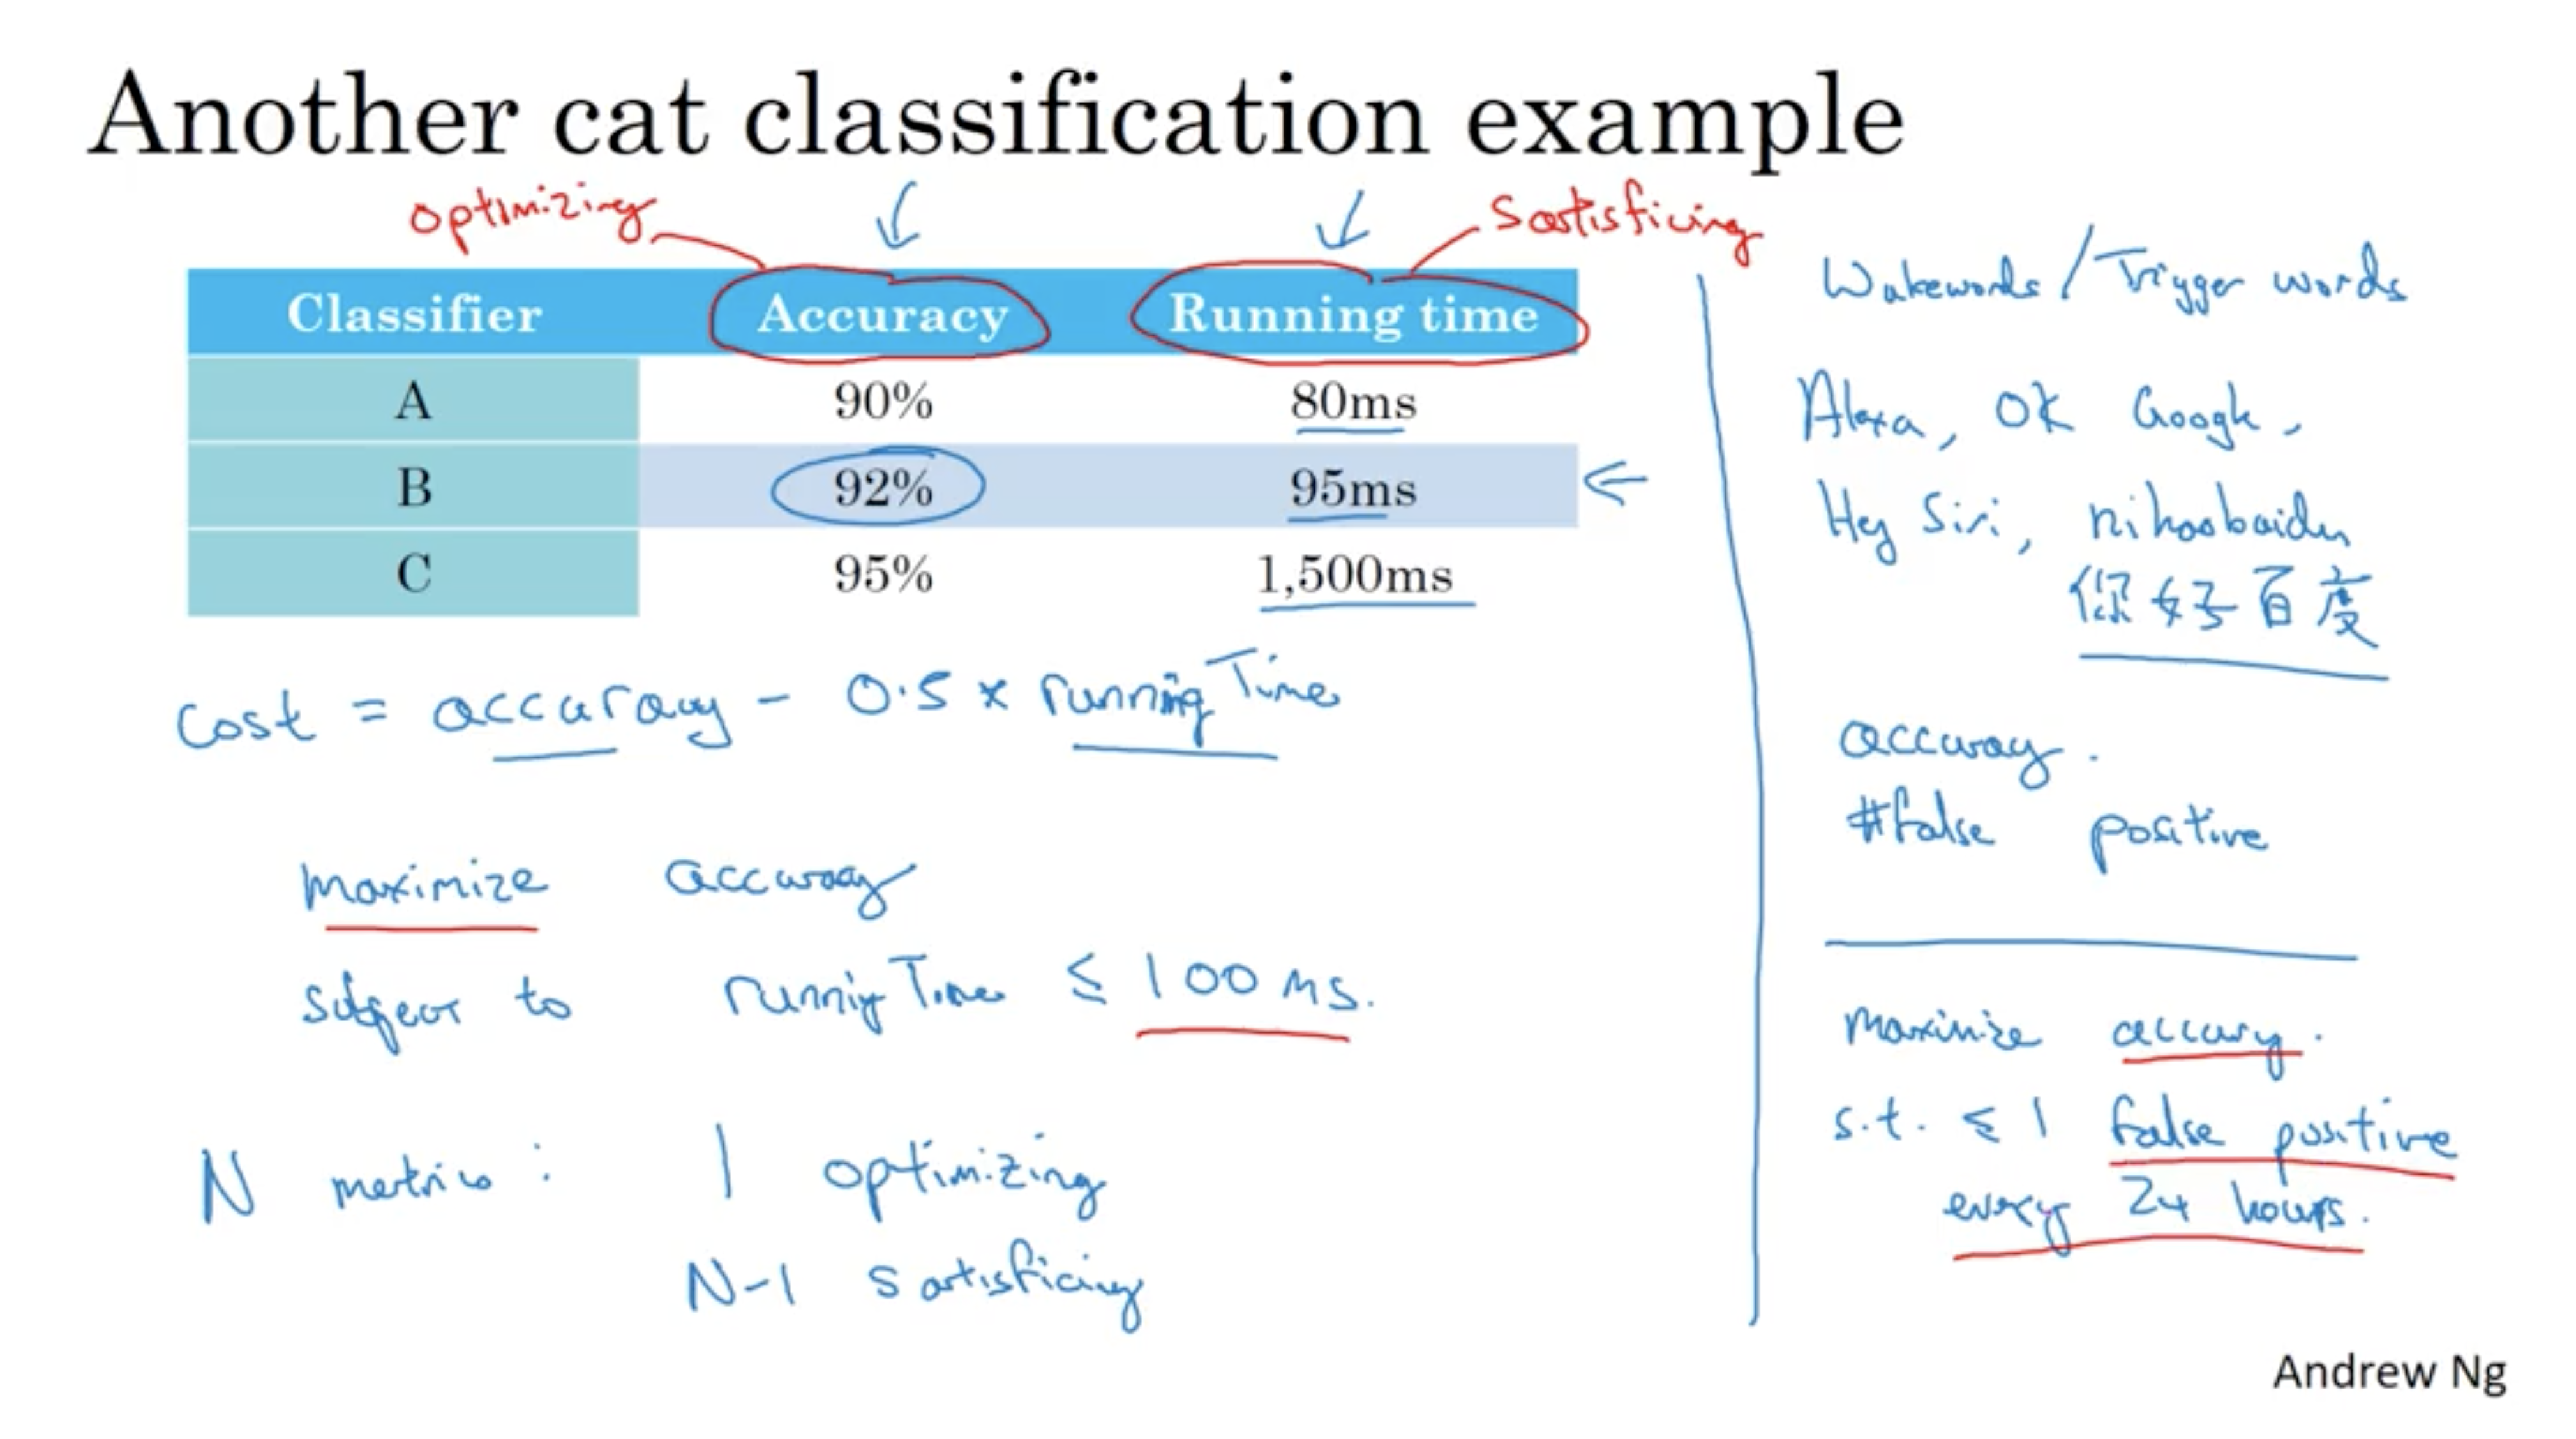 Another cat classification example
optimizing
Satisficing
Classifier Accuracy Running time
A 90% 80ms
B 92% 95ms
C 95% 1,500ms
Cost = accuracy - 0.5 x runningTime
maximize accuracy
subject to runningTime ≤ 100 ms.
N metrics: 1 optimizing
N-1 satisficing
Wakewords / Trigger words
Alexa, OK Google,
Hey Siri, nihaobaidu
你好百度
accuracy.
#false positive
Maximize accuracy.
s.t. ≤ 1 false positive
every 24 hours.
Andrew Ng